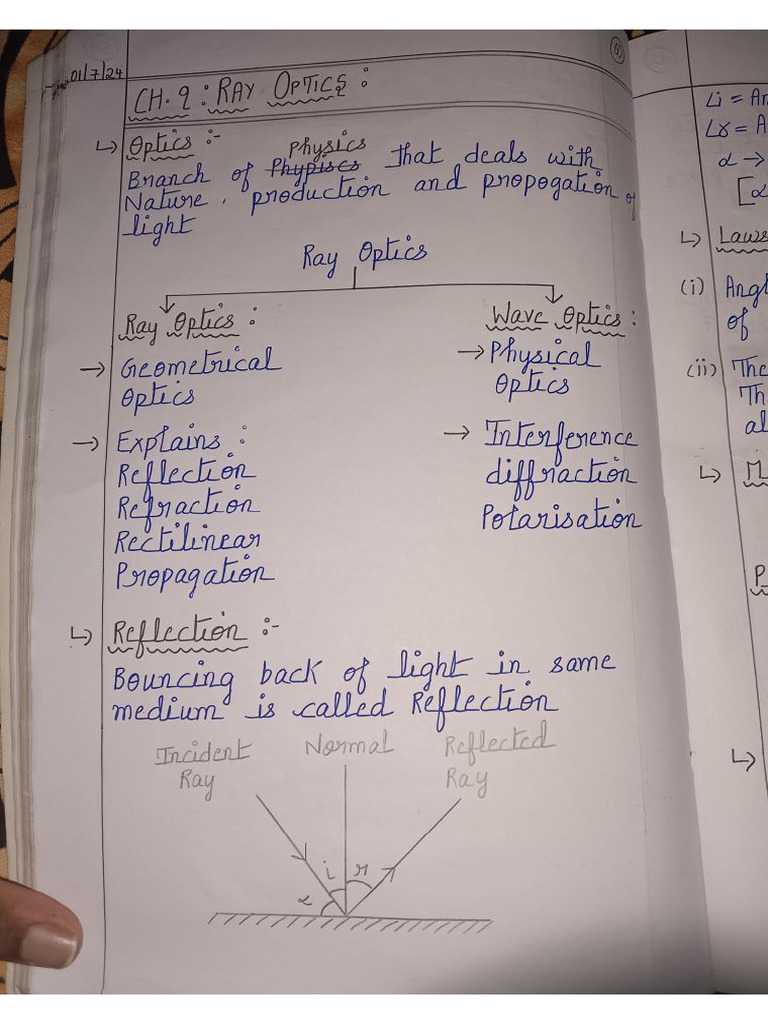 01/7/24
CH. 9 : RAY OPTICS :
↳ Optics :-
Physics
Branch of Phypiscs that deals with
Nature, production and propogation of
light
Ray Optics
Ray Optics :
→ Geometrical
Optics
→ Explains :
Reflection
Refraction
Rectilinear
Propagation
Wave Optics :
→ Physical
Optics
→ Interference
diffraction
Polarisation
↳ Reflection :-
Bouncing back of light in same
medium is called Reflection
Incident
Ray
Normal
Reflected
Ray
i
r
α
∠i = An
∠r = A
α →
[α
↳ Laws
(i) Angl
of
(ii) The
Th
al
↳ M
P
↳